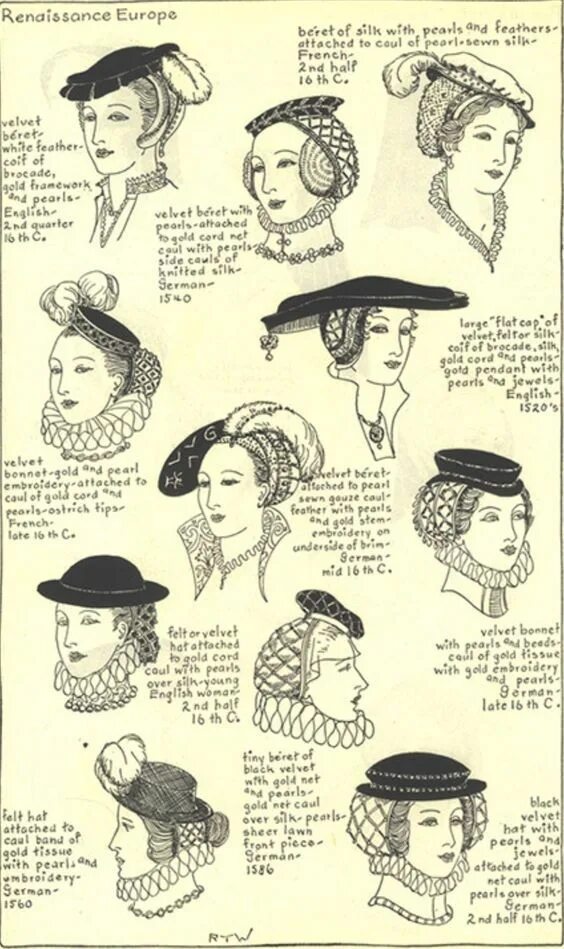 Renaissance Europe
beret of silk with pearls and feathers-
attached to caul of pearl-sewn silk-
French-
2nd half
16 th C.
velvet
béret-
white feather-
coif of
brocade,
gold framework
and pearls-
English-
2nd quarter
16 th C.
velvet béret with
pearls-attached
to gold cord net
caul with pearls
side cauls of
knitted silk-
German-
1540
large "flat cap" of
velvet, felt or silk-
coif of brocade, silk,
gold cord and pearls-
gold pendant with
pearls and jewels-
English-
1520's
velvet
bonnet-gold and pearl
embroidery-attached to
caul of gold cord and
pearls-ostrich tips-
French-
late 16 th C.
velvet béret-
attached to pearl
sewn gauze caul-
feather with pearls
and gold stem-
embroidery on
underside of brim-
German-
mid 16 th C.
velvet bonnet
with pearls and beads-
caul of gold tissue
with gold embroidery
and pearls-
German-
late 16 th C.
felt or velvet
hat attached
to gold cord
caul with pearls
over silk-young
English woman-
2nd half
16 th C.
tiny béret of
black velvet
with gold net
and pearls-
gold net caul
over silk-pearls-
sheer lawn
front piece-
German-
1586
felt hat
attached to
caul band of
gold tissue
with pearls and
embroidery-
German-
1560
black
velvet
hat with
pearls and
jewels-
attached to gold
net caul with
pearls over silk-
German-
2nd half 16 th C.
RTW